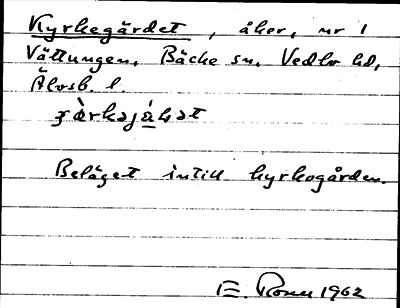 Kyrkegärdet, åker, nr 1
Vättungen, Bäcke sn, Vedbo hd,
Älvsb. l.
Beläget intill kyrkogården.
1962